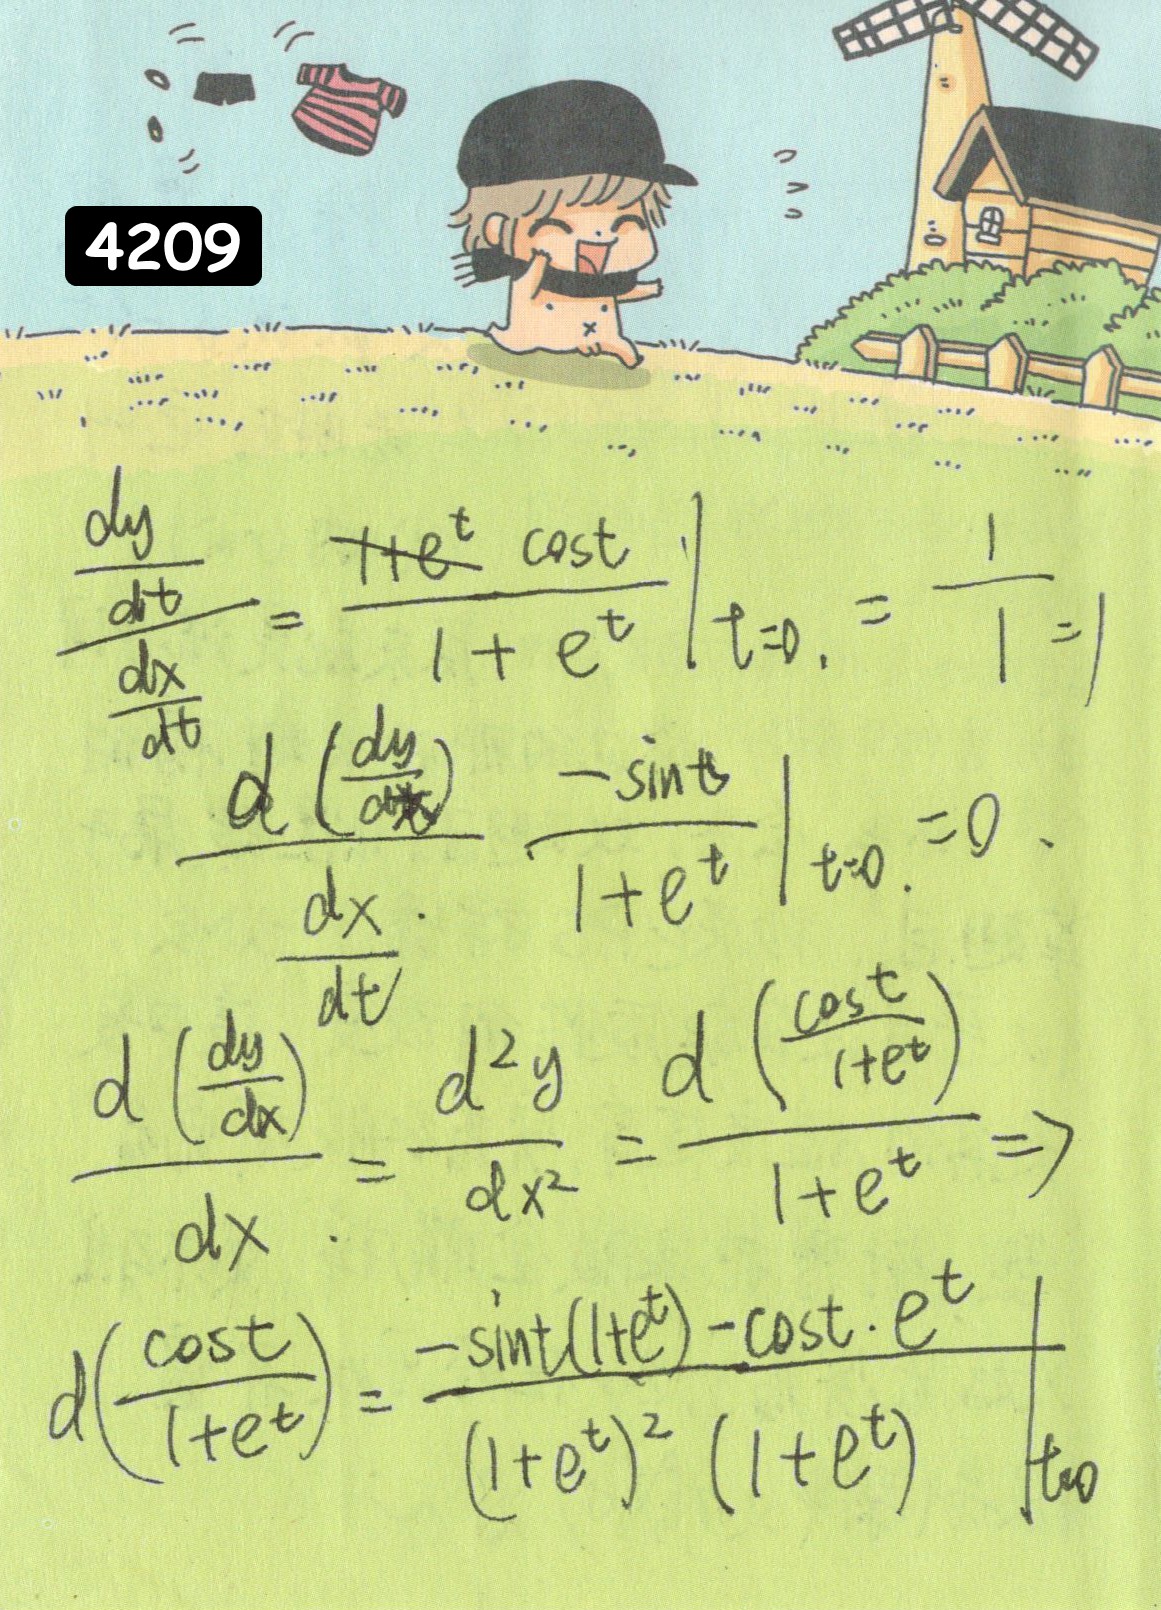 4209
\frac{\frac{dy}{dt}}{\frac{dx}{dt}} = \frac{~~1+e^t~~ cost}{1+e^t} |_{t=0}. = \frac{1}{1} = 1
\frac{d(\frac{dy}{dt})}{\frac{dx}{dt}}. \frac{-sint}{1+e^t} |_{t=0}. = 0.
\frac{d(\frac{dy}{dx})}{dx}. = \frac{d^2y}{dx^2} = \frac{d(\frac{cost}{1+e^t})}{1+e^t} =>
d(\frac{cost}{1+e^t}) = \frac{-sint(1+e^t)-cost·e^t}{(1+e^t)^2 (1+e^t)} |_{t=0}